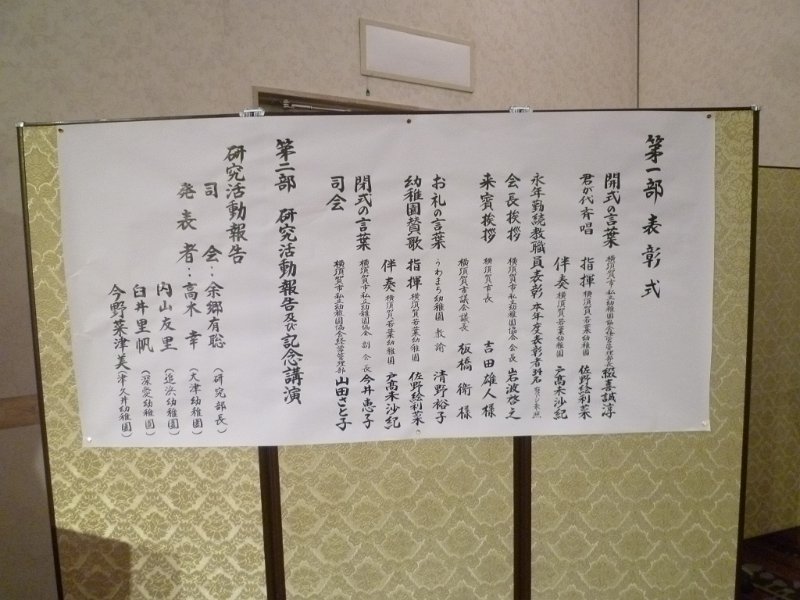 第一部 表彰式
開式の言葉 横須賀市私立幼稚園協会経営管理部長 綴喜誠淳
君が代斉唱 指揮 横須賀若葉幼稚園 佐野絵利菜
伴奏 横須賀若葉幼稚園 戸高未沙紀
永年勤続教職員表彰 本年度表彰者
会長挨拶 横須賀市私立幼稚園協会 会長 岩波啓之
来賓挨拶 横須賀市長 吉田雄人様
横須賀市議会議長 板橋 衛 様
お礼の言葉 うわまち幼稚園 教諭 清野裕子
幼稚園賛歌 指揮 横須賀若葉幼稚園 佐野絵利菜
伴奏 横須賀若葉幼稚園 戸高未沙紀
閉式の言葉 横須賀市私立幼稚園協会 副会長 今井恵子
司会 横須賀市私立幼稚園協会経営管理部 山田さと子
第二部 研究活動報告及び記念講演
研究活動報告
司 会:余郷有聡(研究部長)
発表者:高木 幸(大津幼稚園)
内山友里(追浜幼稚園)
臼井里帆(深愛幼稚園)
今野菜津美(津久井幼稚園)